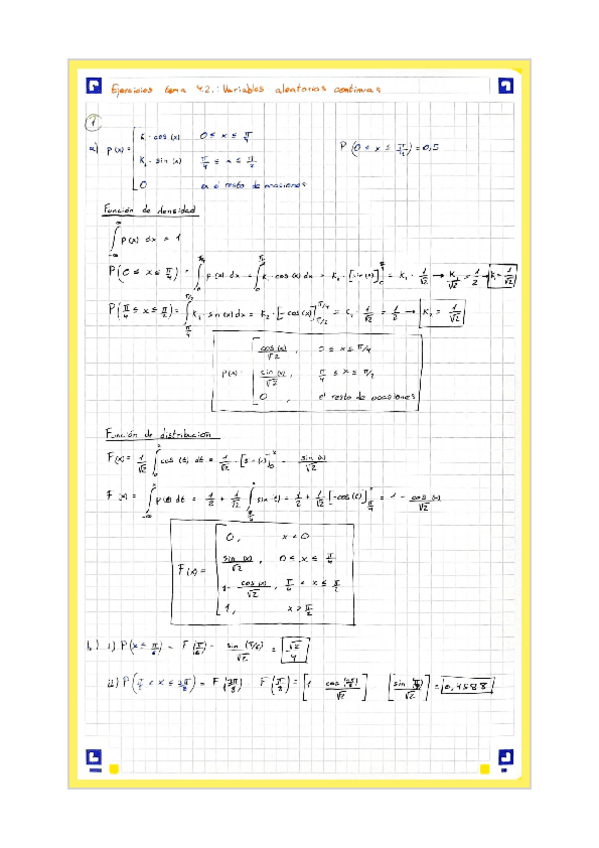 Ejercicios tema 4.2.: Variables aleatorias continuas
1
a) P(x) = K₁·cos(x) 0 ≤ x ≤ π/4
K₂·sin(x) π/4 ≤ x ≤
0 en el resto de ocasiones
P(0 ≤ x ≤ π/4) = 0,5
Función de densidad
∫ P(x) dx = 1
P(0 ≤ x ≤ π/4) = ∫ P(x) dx = ∫ K₁·cos(x) dx = K₁·[sin(x)] = K₁·1/√2 → K₁/√2 = 1/2 → K₁ = 1/√2
P(π/4 ≤ x ≤ π/2) = ∫ K₂·sin(x) dx = K₂·[-cos(x)] = K₂·1/√2 = 1/2 → K₂ = 1/√2
P(x) = cos(x)/√2, 0 ≤ x ≤ π/4
sin(x)/√2, π/4 ≤ x ≤ π/2
0, el resto de ocasiones
Función de distribución
F(x) = 1/√2 ∫ cos(t) dt = 1/√2 · = sin(x)/√2
F(x) = ∫ P(t) dt = 1/2 + 1/√2 ∫ sin(t) = 1/2 + 1/√2 [-cos(t)] = 1 - cos(x)/√2
F(x) = 0, x < 0
sin(x)/√2, 0 ≤ x ≤ π/4
1- cos(x)/√2, π/4 < x ≤ π/2
1, x > π/2
b) i) P(x ≤ π/6) = F(π/6) = sin(π/6)/√2 = √2/4
ii) P( < x ≤ 3π/8) = F(3π/8) F( ) = [1 cos(3π/8)/√2] [sin /√2] = 0,4588